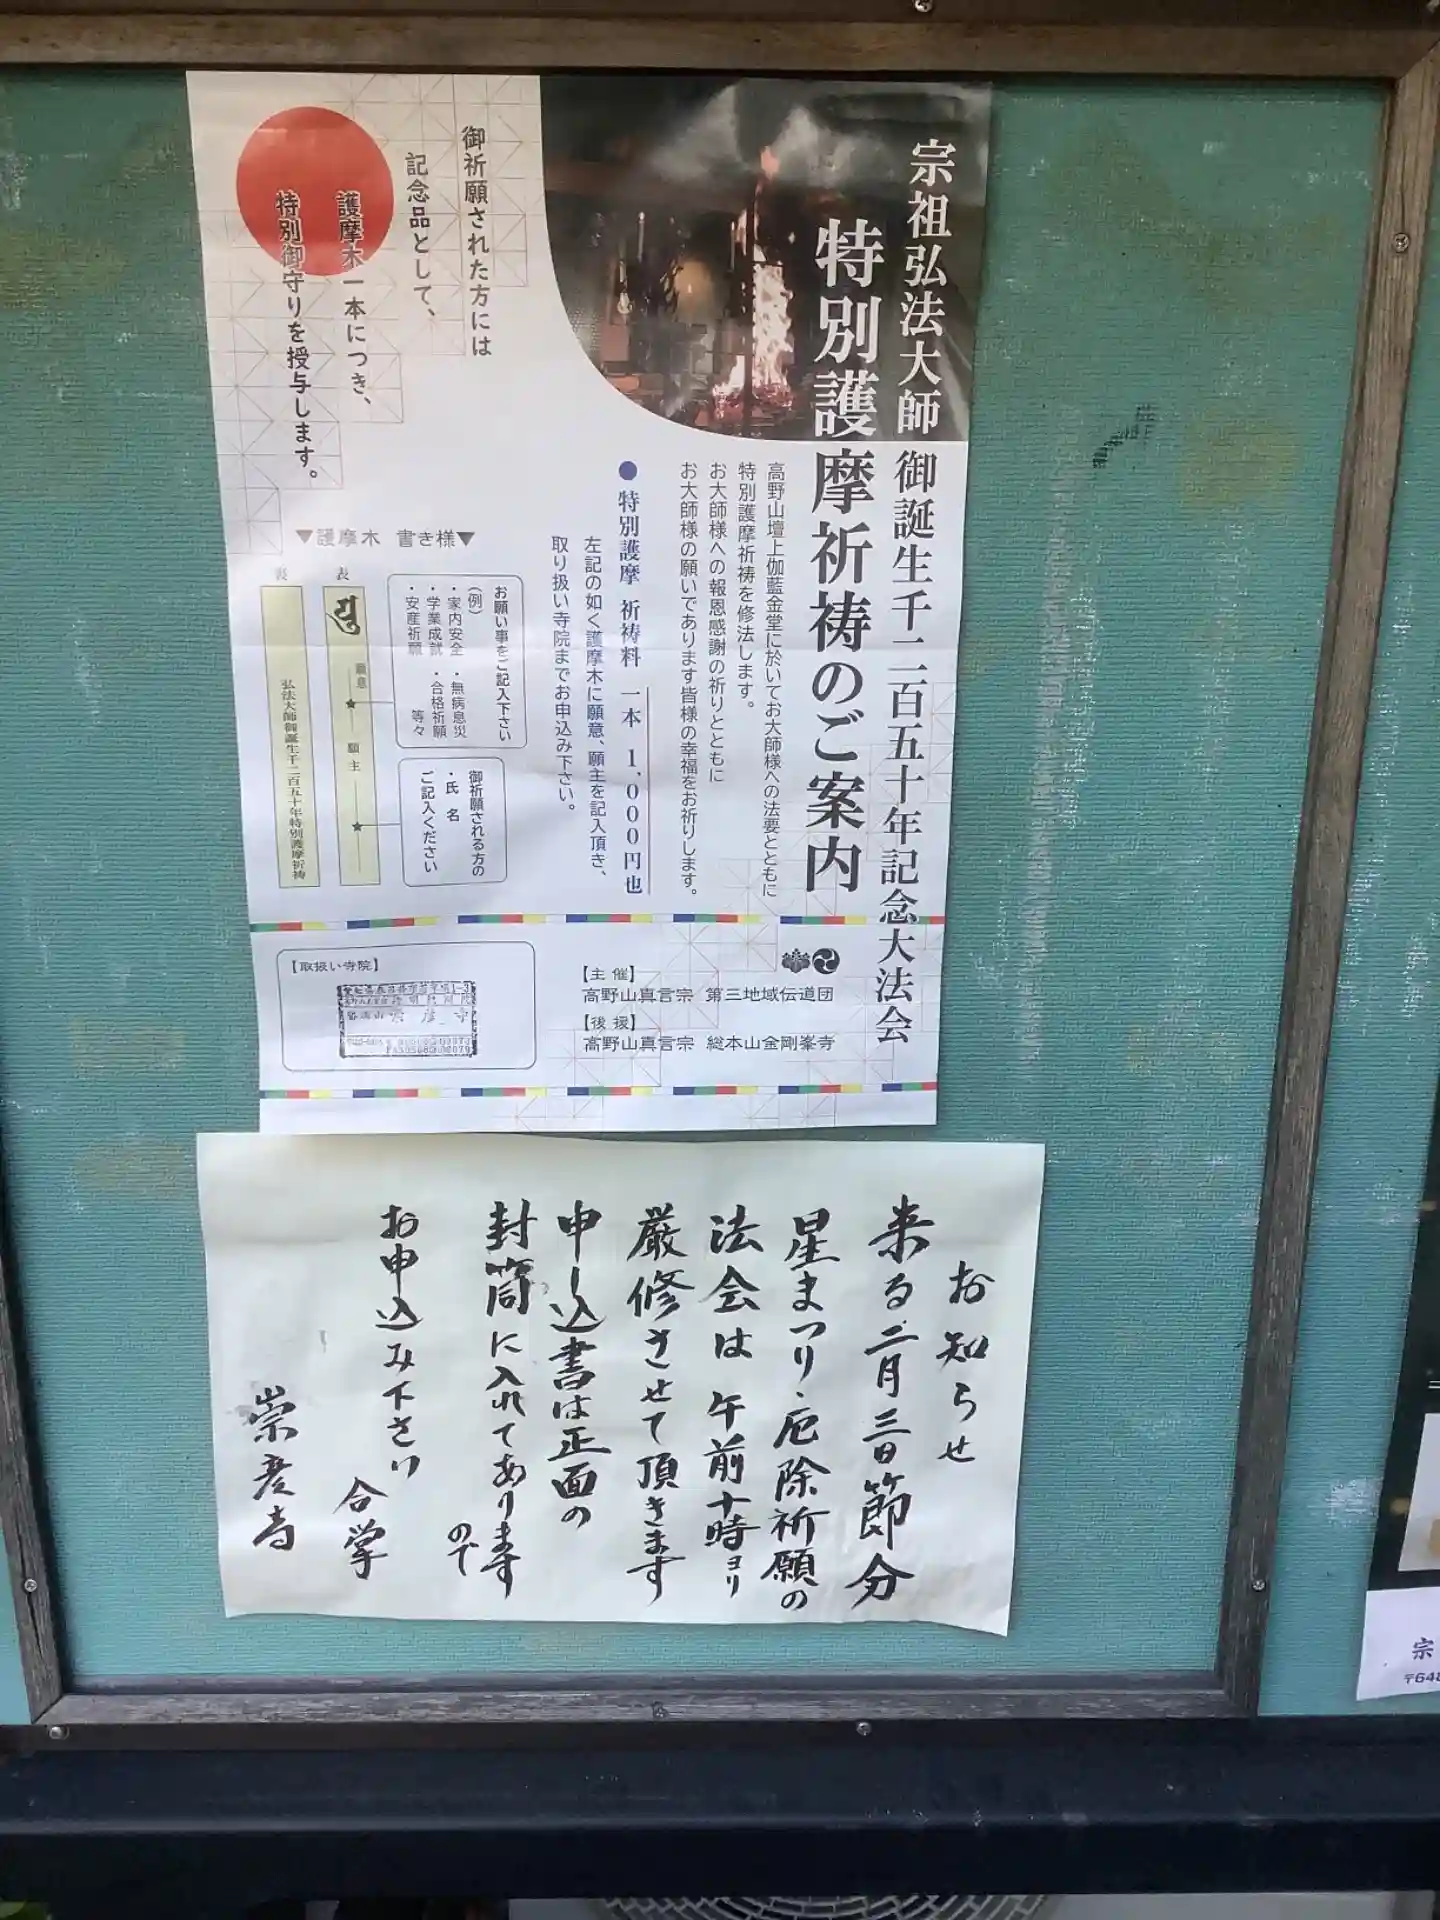 宗祖弘法大師 御誕生千二百五十年記念大法会
特別護摩祈祷のご案内
高野山壇上伽藍金堂に於いてお大師様への法要とともに
特別護摩祈祷を修法します。
お大師様への報恩感謝の祈りとともに
お大師様の願いであります皆様の幸福をお祈りします。
●特別護摩 祈祷料 一本 1,000円也
左記の如く護摩木に願意、願主を記入頂き、
取り扱い寺院までお申込み下さい。
御祈願された方には
記念品として、
護摩木一本につき、
特別御守りを授与します。
▼護摩木 書き様▼
お願い事をご記入下さい
(例)
・家内安全 ・無病息災
・学業成就 ・合格祈願
・安産祈願 等々
御祈願される方の
・氏名
ご記入ください
表
願意
★
願主
★
裏
弘法大師御誕生千二百五十年特別護摩祈祷
【主催】
高野山真言宗 第三地域伝道団
【後援】
高野山真言宗 総本山金剛峯寺
【取扱い寺院】
お知らせ
来る二月三日節分
星まつり・厄除祈願の
法会は午前十時ヨリ
厳修させて頂きます
申し込書は正面の
封筒に入れてあります
ので
お申込み下さい
合掌
崇彦寺
宗
〒648